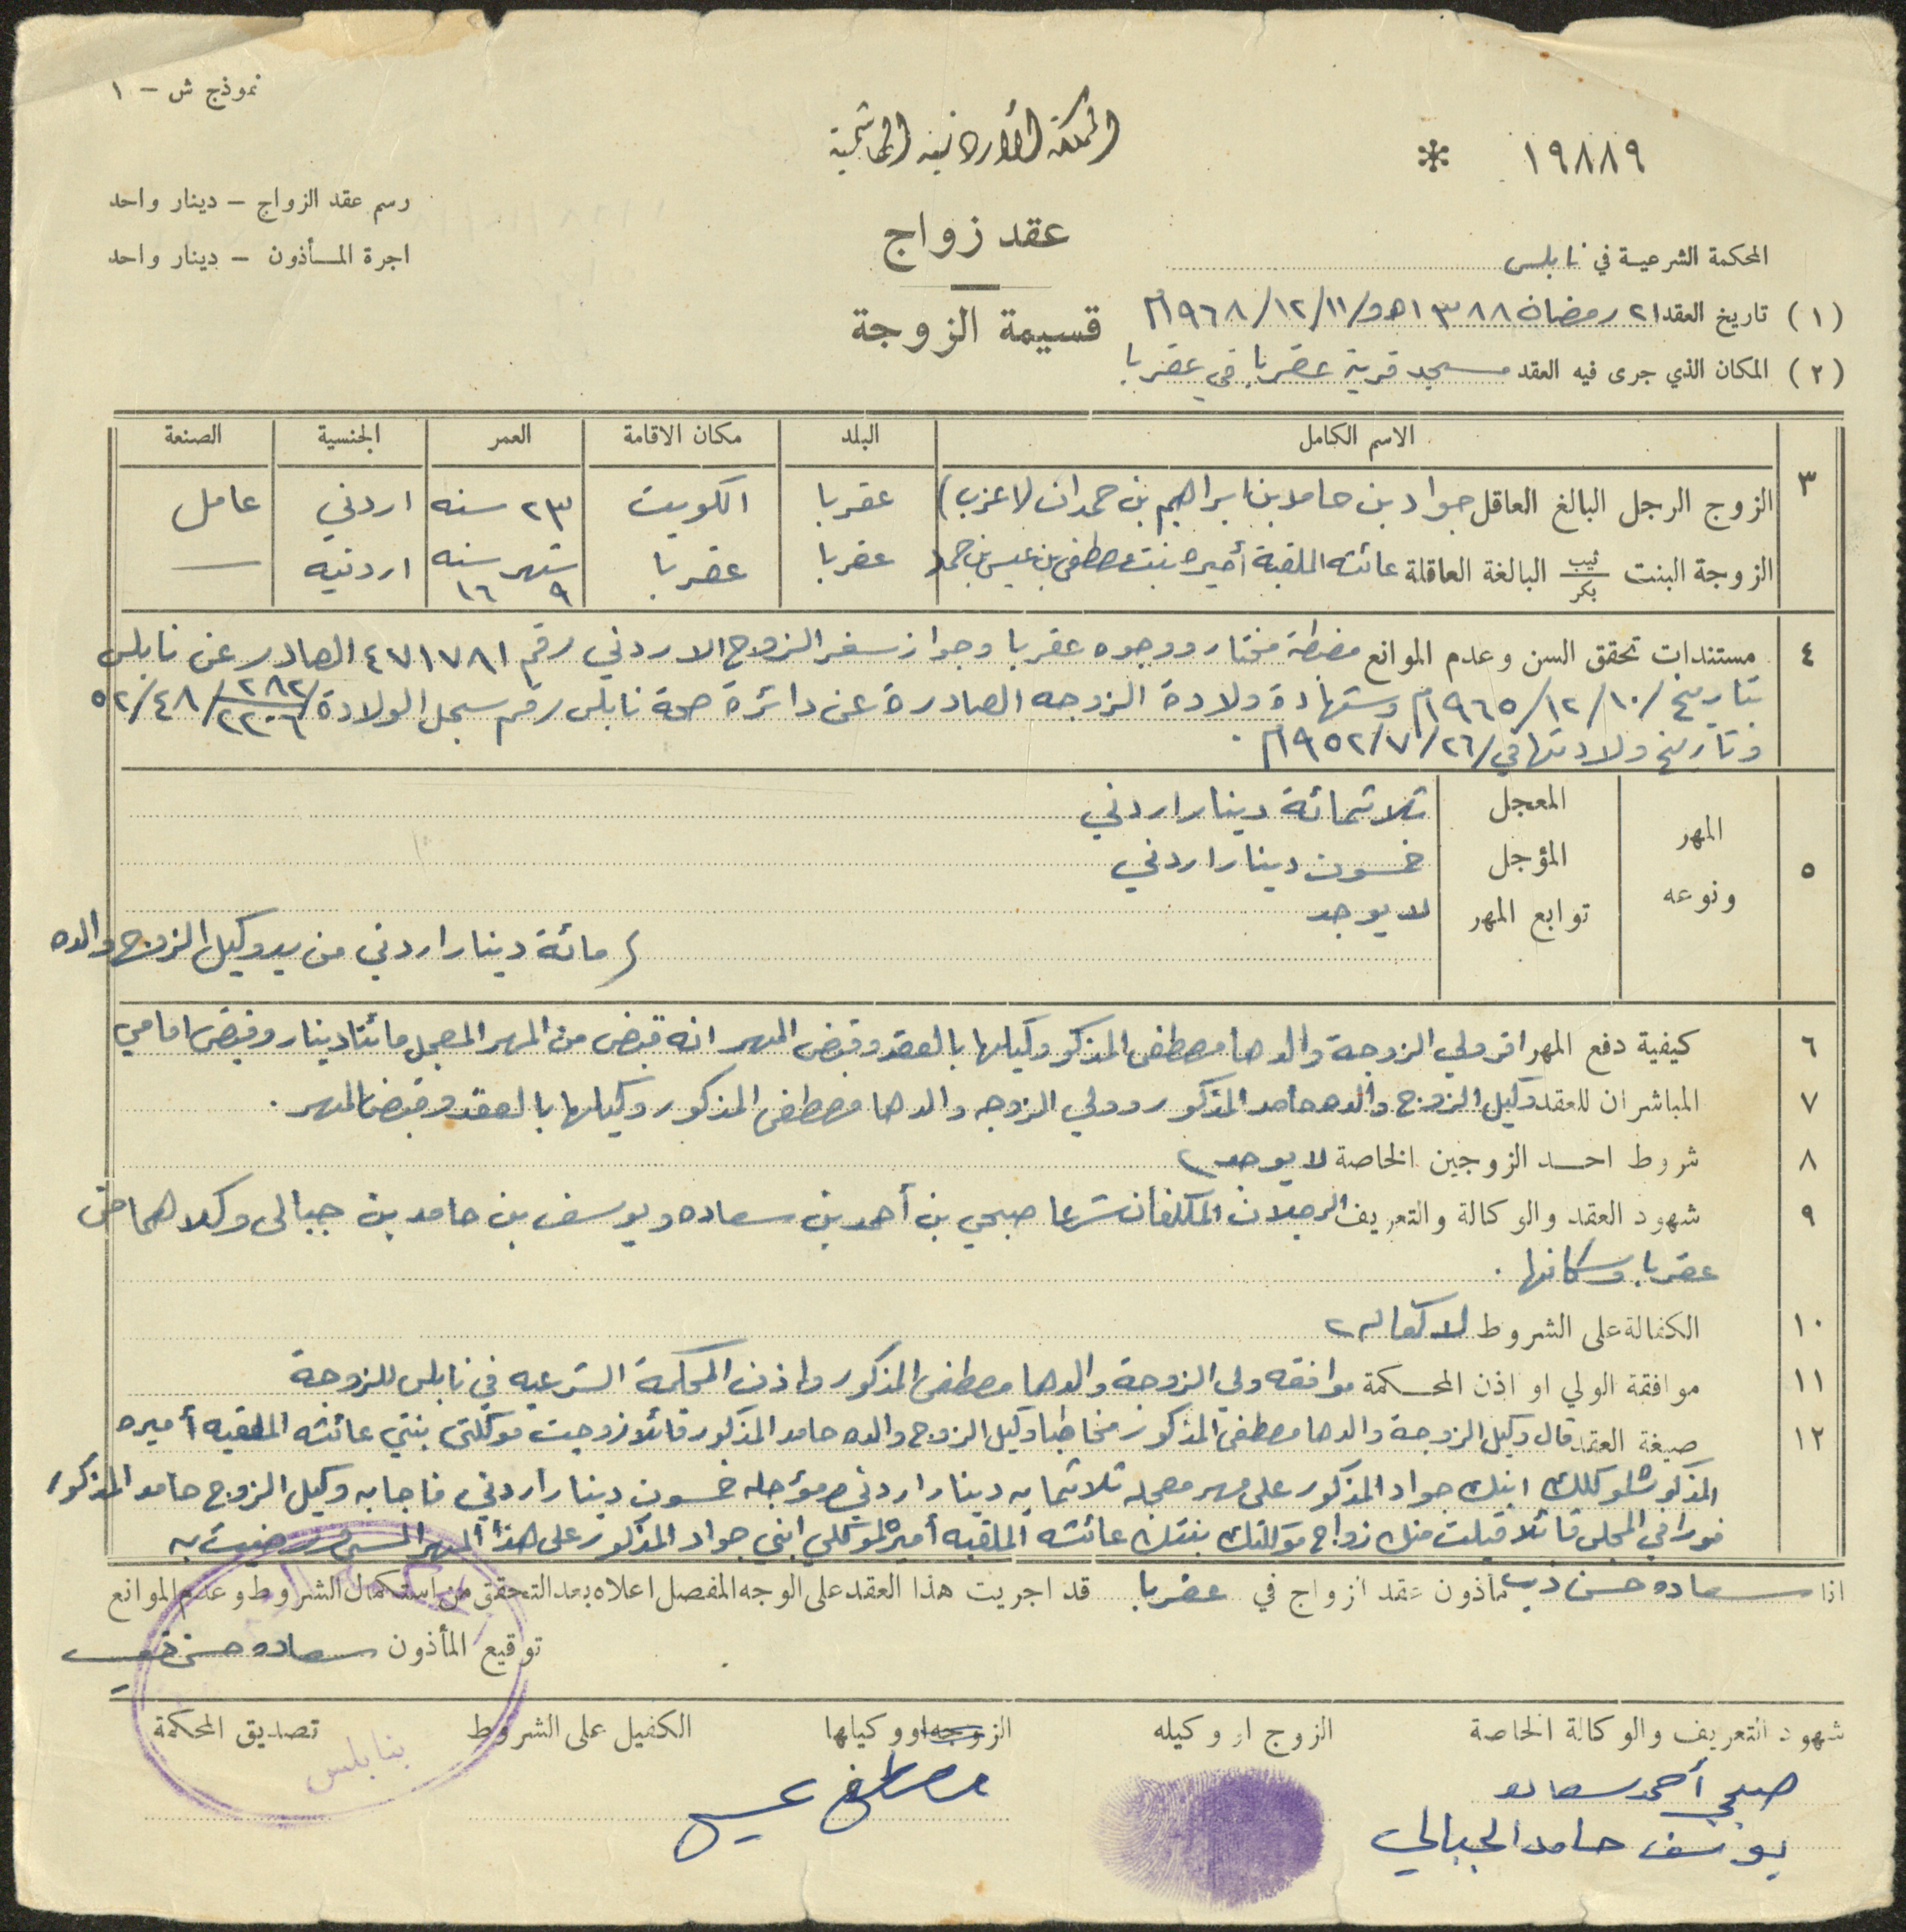 نموذج ش - ١
المملكة الأردنية الهاشمية
١٩٨٨٩ *
رسم عقد الزواج - دينار واحد
اجرة المأذون - دينار واحد
عقد زواج
قسيمة الزوجة
المحكمة الشرعية في نابلس
(١) تاريخ العقد ٢١ رمضان ١٣٨٨هـ و ١١/١٢/١٩٦٨م
(٢) المكان الذي جرى فيه العقد مسجد قرية عقربا في عقربا
٣ الاسم الكامل البلد مكان الاقامة العمر الجنسية الصنعة
الزوج الرجل البالغ العاقل جواد بن حامد بن ابراهيم بن حمدان (اعزب) عقربا الكويت ٢٣ سنه اردني عامل
الزوجة البنت ثيب بكر البالغة العاقلة عائشه الملقبة أميره بنت مصطفى بن عيسى بن حمد عقربا عقربا شهر ٩ سنه ١٦ اردنيه —
٤ مستندات تحقق السن وعدم الموانع مضبطة مختار ووجوه عقربا وجواز سفر الزوج الاردني رقم ٤٧١٧٨١ الصادر عن نابلس
بتاريخ ١٠/١٢/١٩٦٥م وشهادة ولادة الزوجه الصادرة عن دائرة صحة نابلس رقم سجل الولادة ٢٨٢/٢٢٠٦/٤٨/٥٢
وتاريخ ولادتها في ٢٦/٧/١٩٥٢م.
٥ المهر ونوعه
المعجل ثلاثمائة دينار اردني
المؤجل خمسون دينار اردني
توابع المهر لا يوجد
(مائة دينار اردني من يد وكيل الزوج والده
٦ كيفية دفع المهر اقر ولي الزوجة والدها مصطفى المذكور وكيلها بالعقد وقبض المهر انه قبض من المهر المعجل مائتا دينار وقبض امامي
٧ المباشران للعقد وكيل الزوج والده حامد المذكور وولي الزوجه والدها مصطفى المذكور وكيلها بالعقد وقبض المهر.
٨ شروط احد الزوجين الخاصة لا يوجد
٩ شهود العقد والوكالة والتعريف الرجلان المكلفان شرعا صبحي بن أحمد بن سعاده ويوسف بن حامد بن جبالي وكلاهما من
عقربا وسكانها.
١٠ الكفالة على الشروط لا كفاله
١١ موافقة الولي او اذن المحكمة موافقه ولي الزوجة والدها مصطفى المذكور واذن المحكمة الشرعيه في نابلس للزوجة
١٢ صيغة العقد قال وكيل الزوجة والدها مصطفى المذكور مخاطبا وكيل الزوج والده حامد المذكور قائلا زوجت موكلتي بنتي عائشه الملقبه أميره
المذكوره لموكلك ابنك جواد المذكور على مهر معجله ثلاثمايه دينار اردني ومؤجله خمسون دينار اردني فاجابه وكيل الزوج حامد المذكور
فورا في المجلس قائلا قبلت منك زواج موكلتك بنتك عائشه الملقبه أميره لموكلي ابني جواد المذكور على هذا المهر المسمى ورضيت به
انا سعاده حسن ذيب مأذون عقد الزواج في عقربا قد اجريت هذا العقد على الوجه المفصل اعلاه بعد التحقق من استكمال الشروط وعدم الموانع
توقيع المأذون سعاده حسن ذيب
شهود التعريف والوكالة الخاصة
الزوج او وكيله
الزوجه او وكيلها
الكفيل على الشروط
تصديق المحكمة
بنابلس
مصطفى عيسى
صبحي أحمد سعاده
يوسف حامد الجبالي